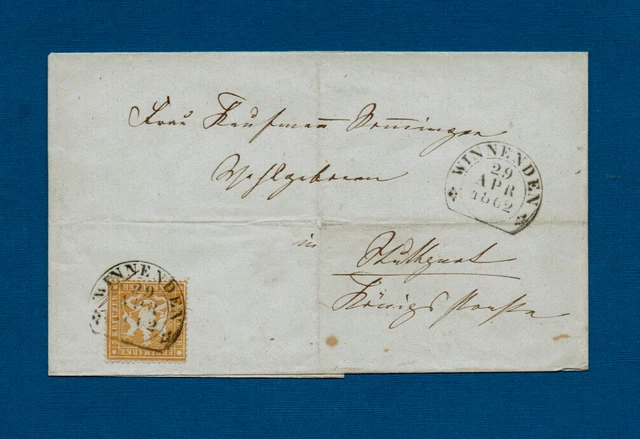 Frau Kaufmann
Wohlgeboren
in
Stuttgart
Königsstraße
WINNENDEN
29
APR
1862
WINNENDEN
29
FREIMARKE